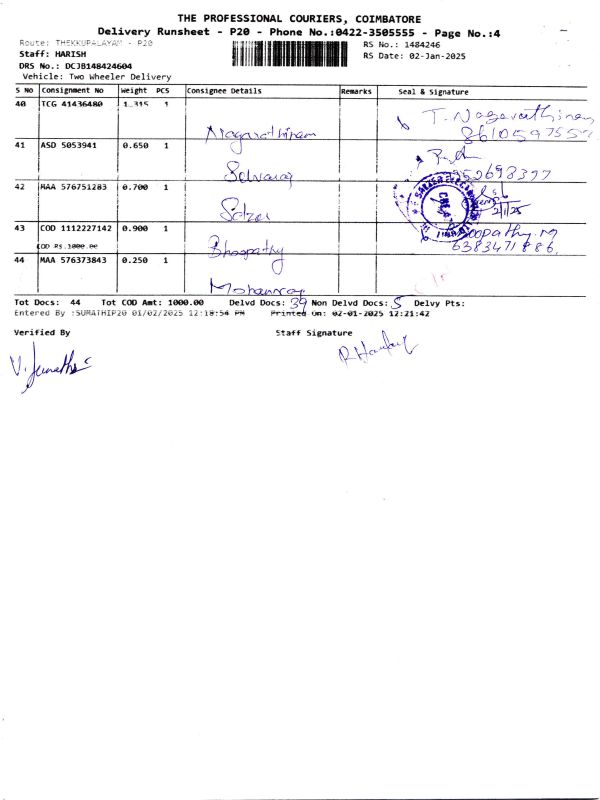 THE PROFESSIONAL COURIERS, COIMBATORE
Delivery Runsheet - P20 - Phone No.:0422-3505555 - Page No.:4
Route: THEKKUPALAYAM - P20
RS No.: 1484246
Staff: HARISH
RS Date: 02-Jan-2025
DRS No.: DCJB148424604
Vehicle: Two Wheeler Delivery
S NO Consignment No Weight PCS Consignee Details Remarks Seal & Signature
40 TCG 41436480 1.315 1 Nagarathinam T. Nagarathinam
41 ASD 5053941 0.650 1 Selvaraj
42 MAA 576751283 0.700 1 2/1/25
43 COD 1112227142 0.900 1 Bhoopathy
COD RS.1000.00 6383471886
44 MAA 576373843 0.250 1 Mohanraj
Tot Docs: 44 Tot COD Amt: 1000.00 Delvd Docs: 39 Non Delvd Docs: 5 Delvy Pts:
Entered By :SUMATHIP20 01/02/2025 12:18:54 PM Printed On: 02-01-2025 12:21:42
Verified By Staff Signature